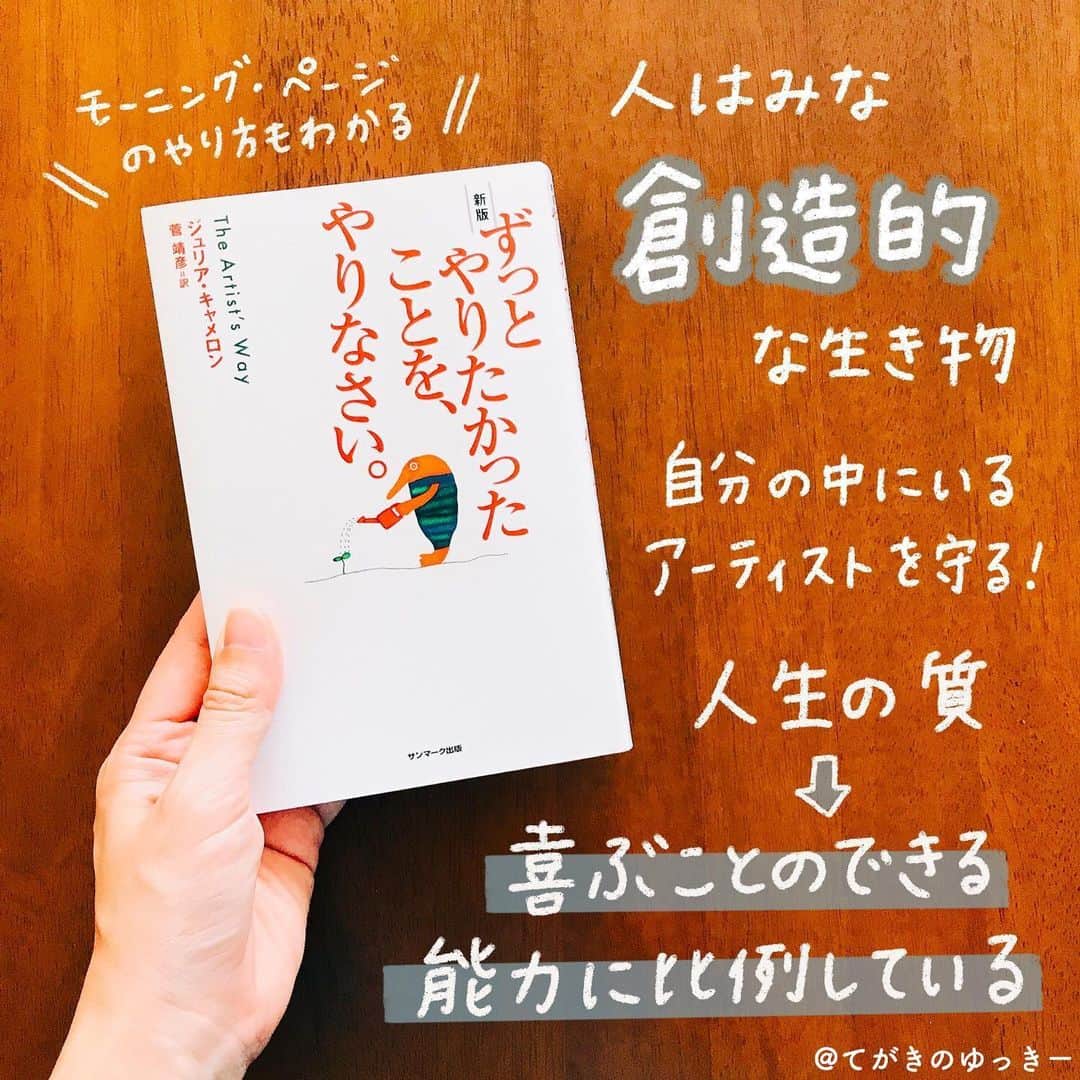 モーニング・ページ
のやり方もわかる
人はみな
創造的
な生き物
自分の中にいる
アーティストを守る!
人生の質
喜ぶことのできる
能力に比例している
新版
ずっと
やりたかった
ことを、
やりなさい。
ジュリア・キャメロン
菅 靖彦=訳
The Artist's Way
サンマーク出版
@てがきのゆっきー